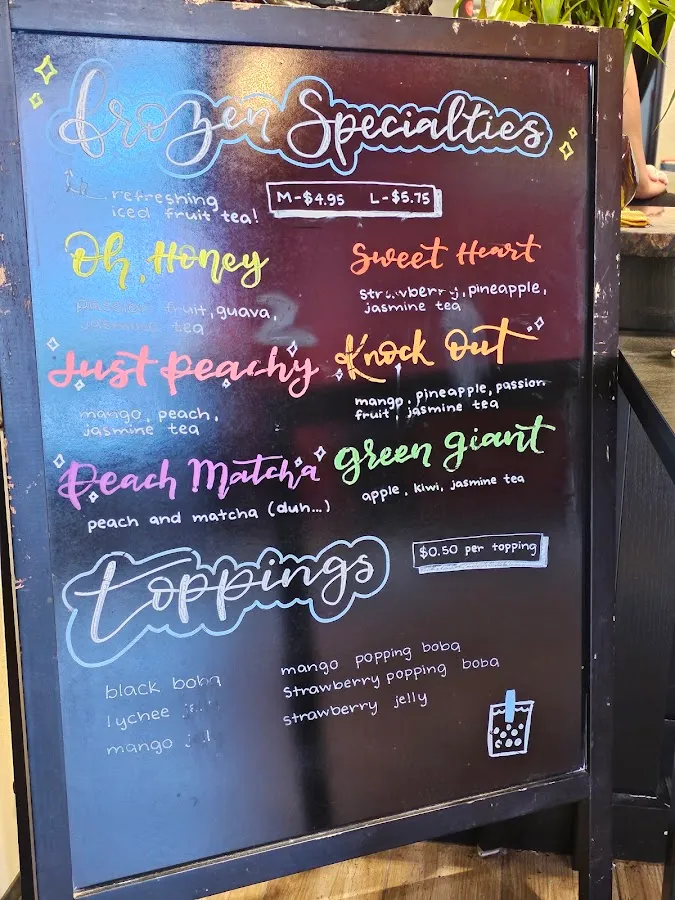 frozen Specialties
refreshing
iced fruit tea!
M-$4.95 L-$5.75
Oh, Honey
passion fruit, guava,
jasmine tea
Sweet Heart
strawberry, pineapple,
jasmine tea
Just Peachy
mango, peach,
jasmine tea
Knock Out
mango, pineapple, passion
fruit, jasmine tea
Peach Matcha
peach and matcha (duh...)
green giant
apple, kiwi, jasmine tea
toppings
$0.50 per topping
black boba
lychee
mango
mango popping boba
strawberry popping boba
strawberry jelly